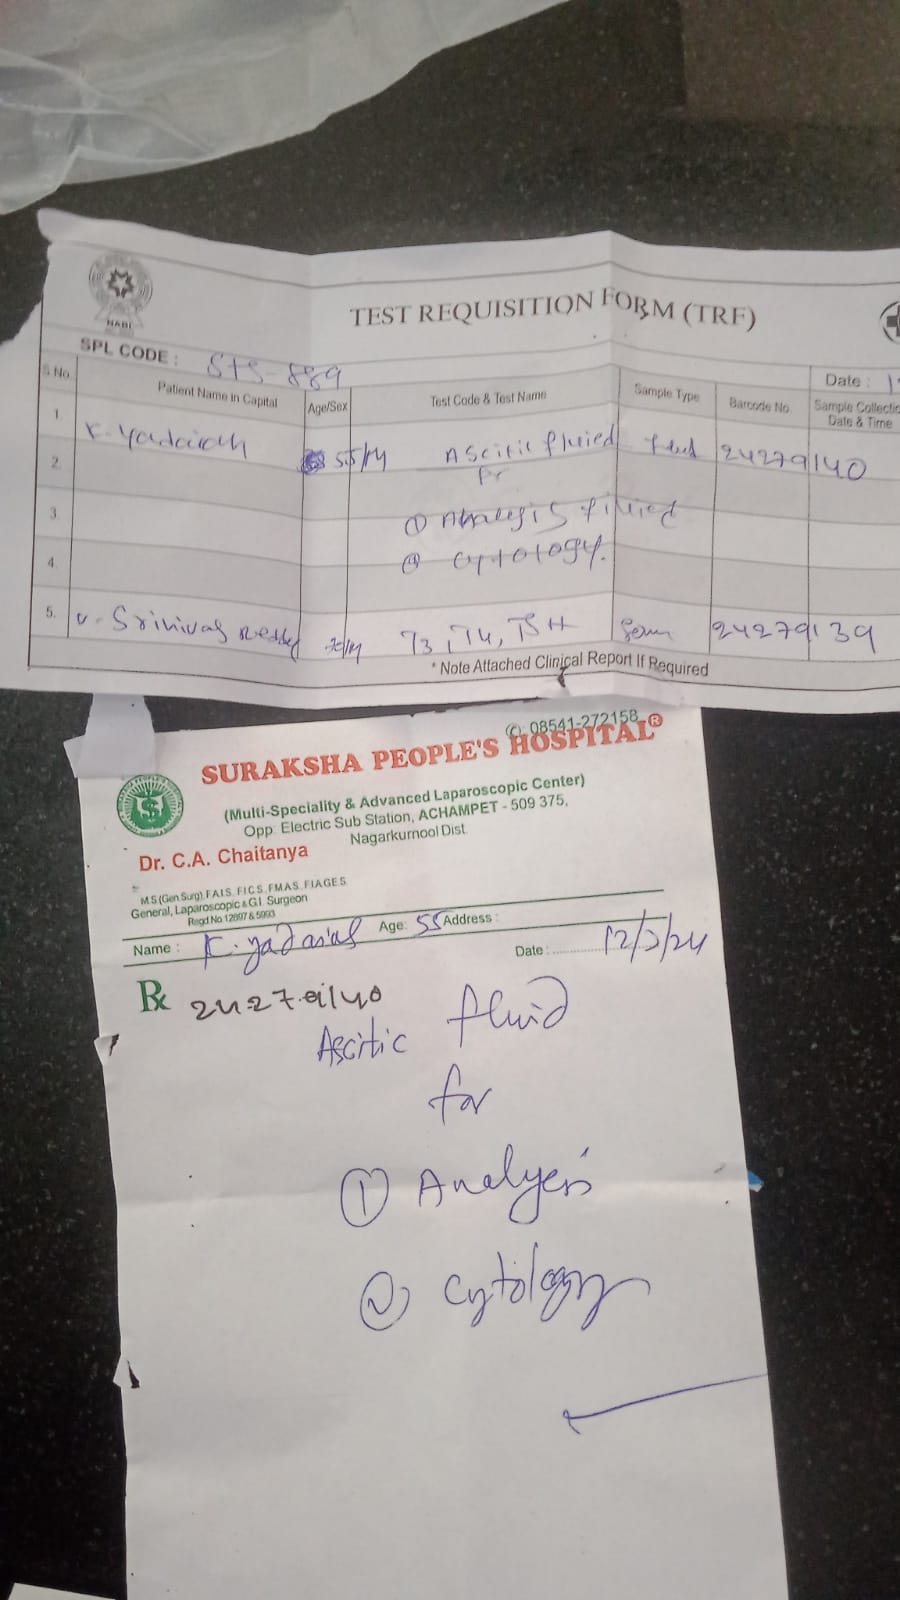 NABL
TEST REQUISITION FORM (TRF)
SPL CODE : STS-889
Date : 1
S No. Patient Name in Capital Age/Sex Test Code & Test Name Sample Type Barcode No. Sample Collectio
Date & Time
1.
K. Yadaiah 55/M Ascitic fluied Flud 24279140
2.
①
3. Analysis fluied
4. ② Cytology.
5. V. Srinivas Reddy /M T3, T4, TSH 24279139
* Note Attached Clinical Report If Required
✆: 08541-272158
SURAKSHA PEOPLE'S HOSPITAL®
(Multi-Speciality & Advanced Laparoscopic Center)
Opp: Electric Sub Station, ACHAMPET - 509 375,
Nagarkurnool Dist.
Dr. C.A. Chaitanya
M.S (Gen.Surg) F.A.I.S. F.I.C.S. F.M.A.S. F.I.A.G.E.S
General, Laparoscopic & G.I. Surgeon
Regd.No.12897 & 5993
Name : K. Yadaiah Age: 55 Address :
Date : 12/2/24
Rx 24279140
Ascitic fluid
for
① Analysis
② Cytology